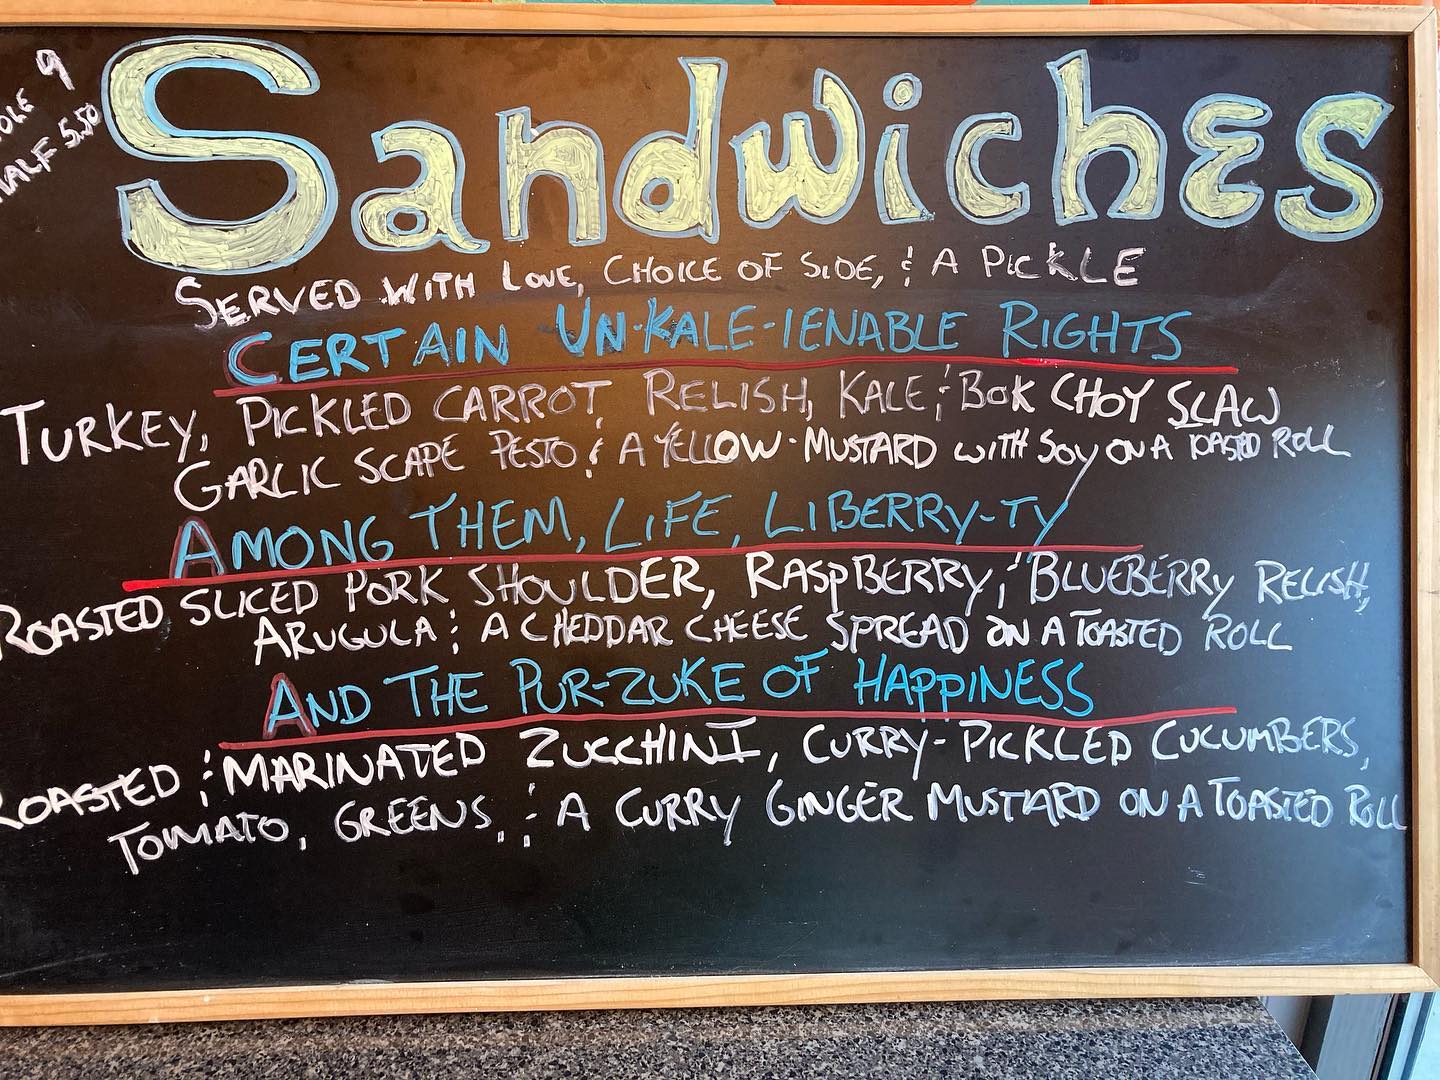 9
HALF 5.50
Sandwiches
SERVED WITH LOVE, CHOICE OF SIDE, & A PICKLE
CERTAIN UN-KALE-IENABLE RIGHTS
TURKEY, PICKLED CARROT RELISH, KALE & BOK CHOY SLAW
GARLIC SCAPE PESTO & A YELLOW-MUSTARD WITH SOY ON A TOASTED ROLL
AMONG THEM, LIFE, LIBERRY-TY
ROASTED SLICED PORK SHOULDER, RASPBERRY & BLUEBERRY RELISH,
ARUGULA & A CHEDDAR CHEESE SPREAD ON A TOASTED ROLL
AND THE PUR-ZUKE OF HAPPINESS
ROASTED & MARINATED ZUCCHINI, CURRY-PICKLED CUCUMBERS,
TOMATO, GREENS, & A CURRY GINGER MUSTARD ON A TOASTED ROLL